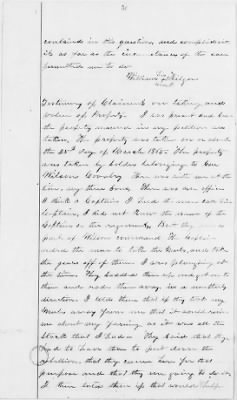 31
contained in his questions, and complied with
it as far as the circumstances of the case
permitted me to do
William
Testimony of Claimant on taking and
orders of Property. I was present and saw
the property mentioned in my petition was
taken. The property was taken on or about
the 28th day of March 1865. The property
was taken by soldiers belonging to Gen
Wilsons Cavalry. There was with me at the
time, my three sons. There was an officer
I think a Captain. I heard the men call him
Captain, I did not know the name of the
Captain or the regiment. But they were a
part of Wilsons command. The Captain
ordered the men to take the Mules, and take
the gears off of them. I was plowing at
the time. They saddled them up and got on to
them and rode them away, in a
direction. I told them that if they took my
Mules away from me that it would ruin
me about my farming as it was all the
Stock that I had. They said that they
had to have them to put down the
rebellion, that they came here for that
purpose and that they are going to do it.
I then told them if that would help